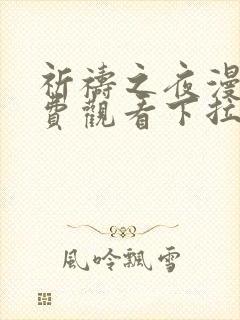 祈禱之夜漫
費觀看下拉
風吟飄雪